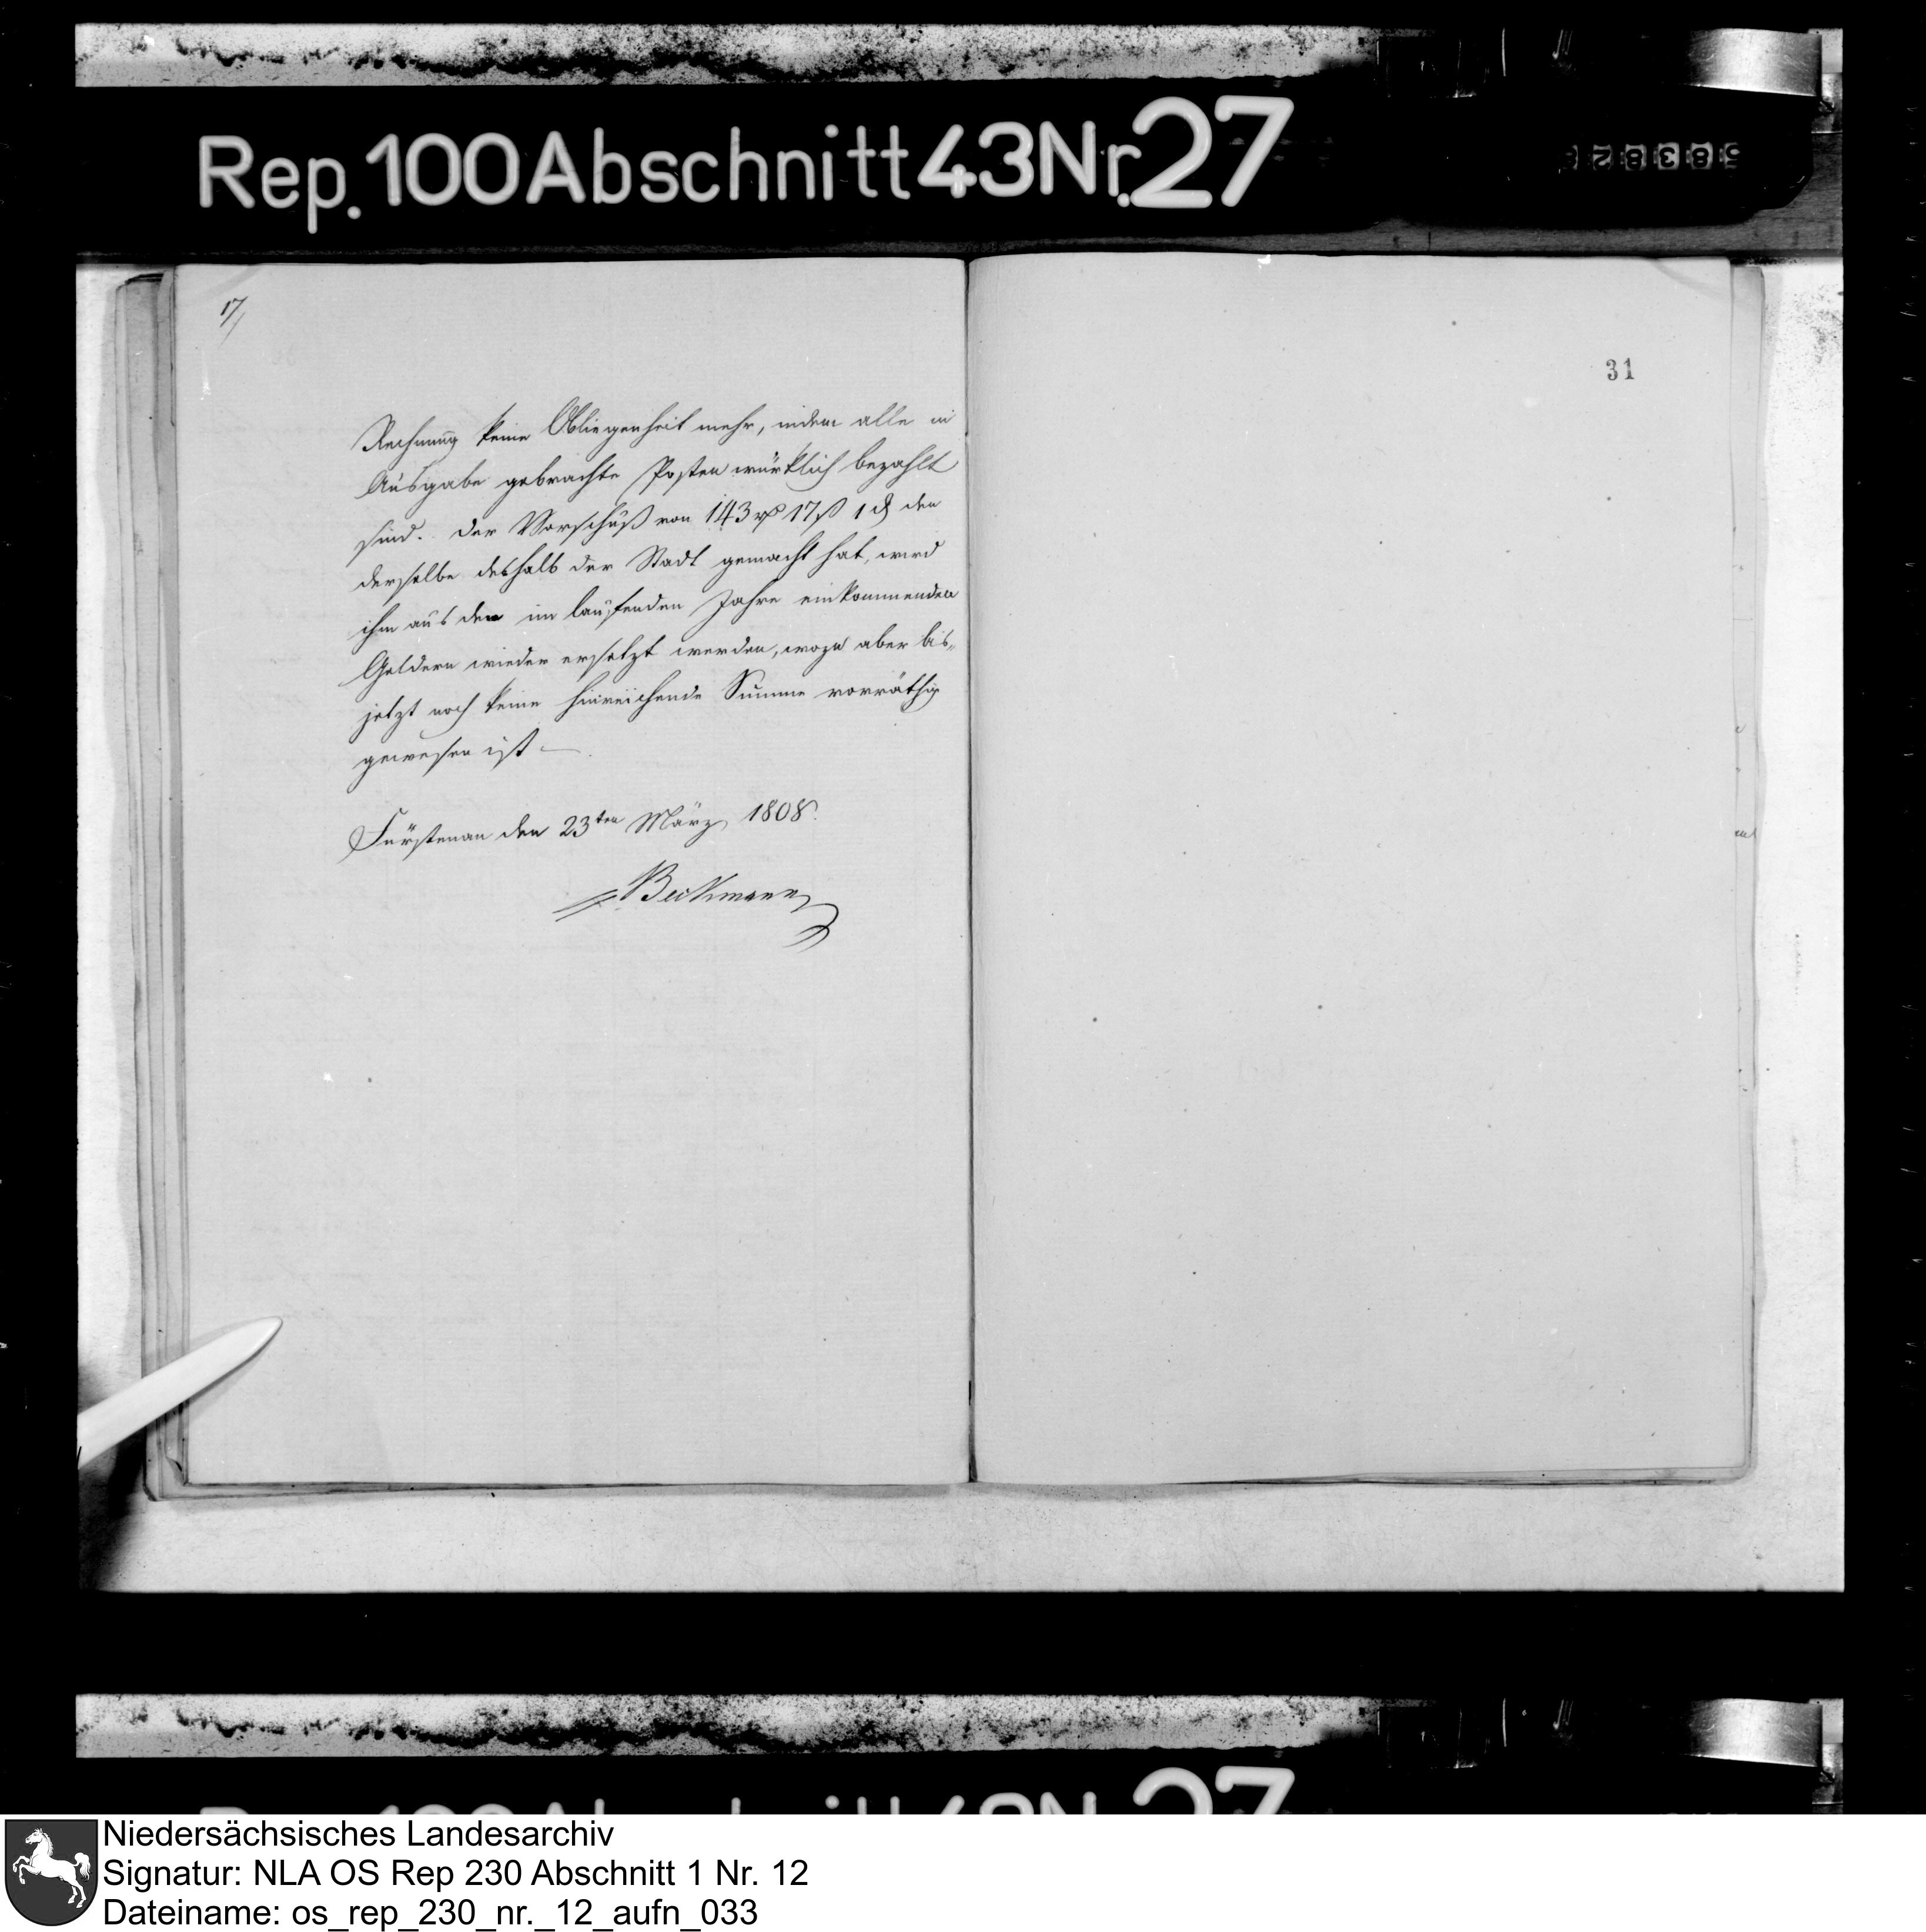 Rep. 100 Abschnitt 43 Nr. 27
58382
17/
31
Rechnung keine Obliegenheit mehr, indem alle in
Ausgabe gebrachte Posten würklich bezahlt
sind. Der Vorschuß von 143 rℓ 17 ß 1 ₰ den
derselbe deshalb der Stadt gemacht hat, wird
ihm aus den im laufenden Jahre einkommenden
Geldern wieder ersetzt werden, wozu aber bis-
jetzt noch keine hinreichende Summe vorräthig
gewesen ist —
Fürstenau den 23ten März 1808.
Beckmann
Niedersächsisches Landesarchiv
Signatur: NLA OS Rep 230 Abschnitt 1 Nr. 12
Dateiname: os_rep_230_nr._12_aufn_033